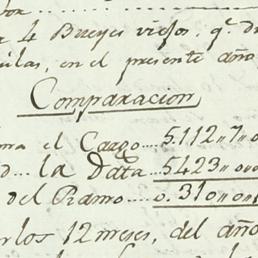 4 Bueyes viejos, q.e
en el presente año
Comparacion
ma el Cargo....5.112,,7,,0
la Data....5423,,00
del Ramo....0.310,,00,,
los 12 meses, del año